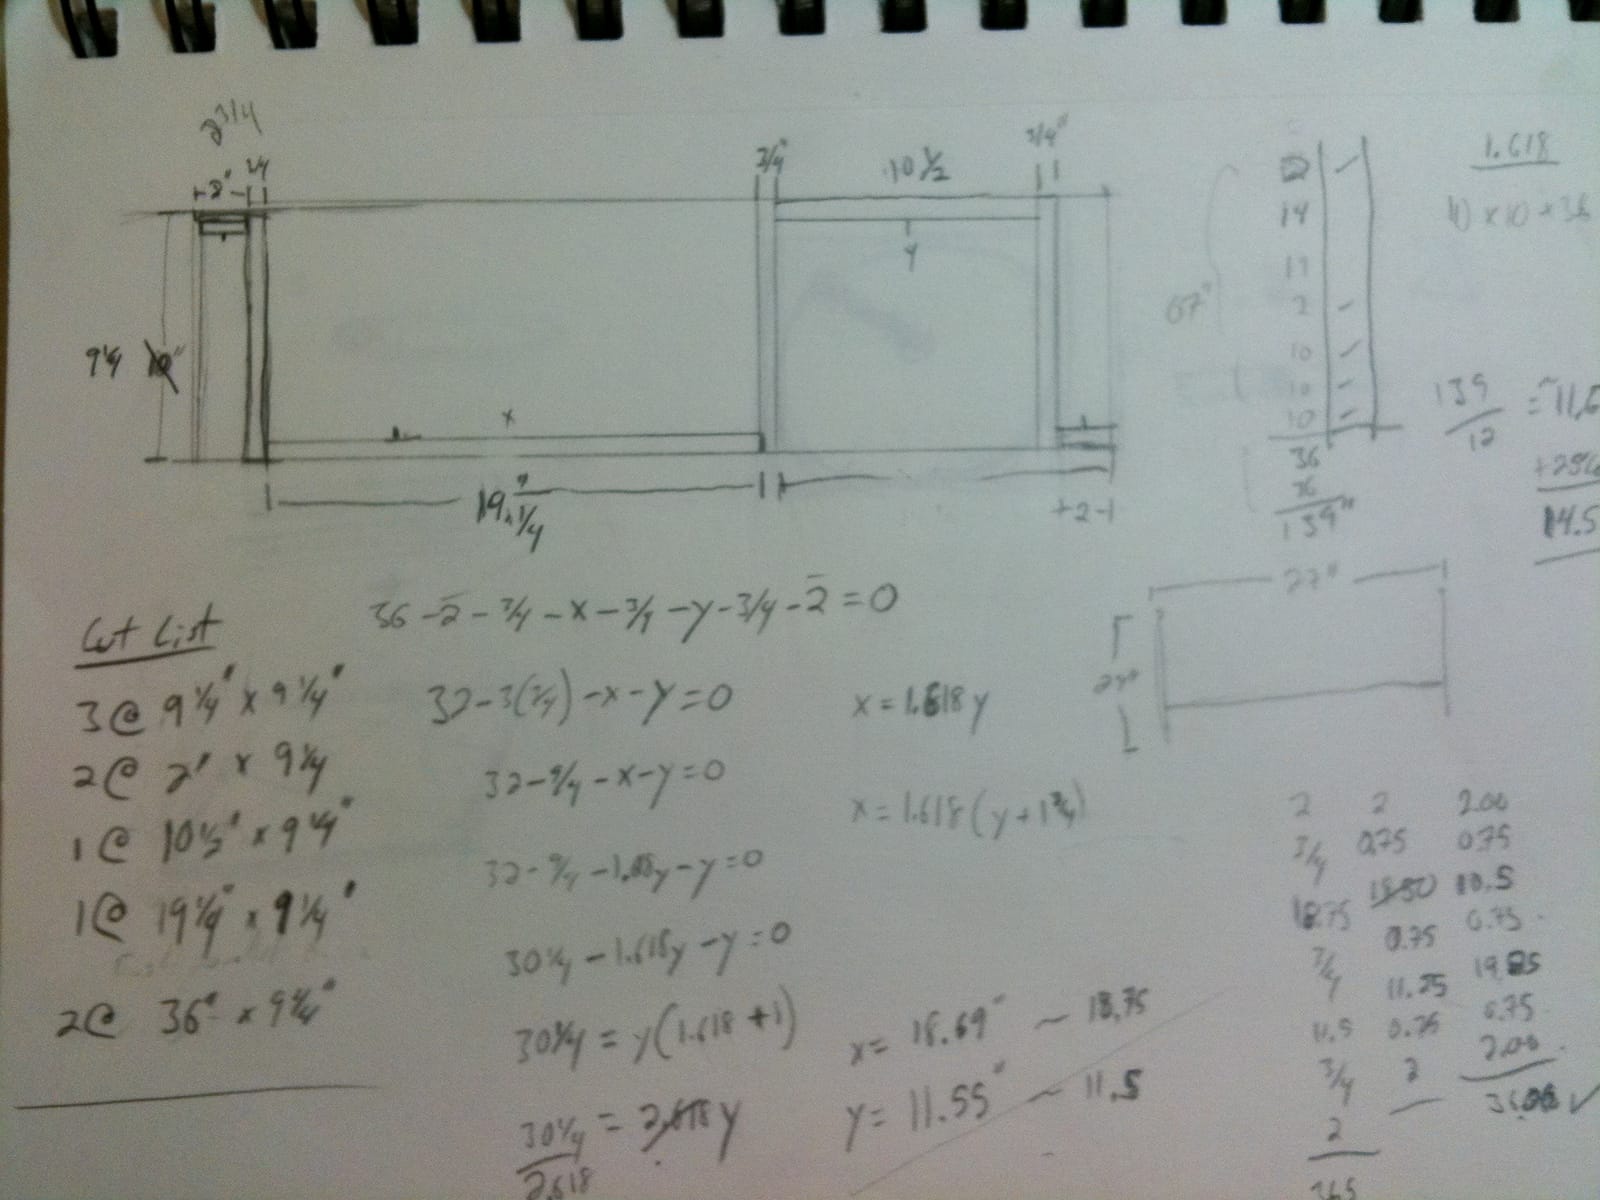 2 3/4
2" 3/4 3/4" 10 1/2 3/4"
y
9 1/4 10"
x
19 1/4"
2
Cut List
3 @ 9 1/4" x 9 1/4"
2 @ 2" x 9 1/4
1 @ 10 1/2" x 9 1/4"
1 @ 19 1/4" x 9 1/4"
2 @ 36" x 9 1/4"
36 - 2 - 3/4 - x - 3/4 - y - 3/4 - 2 = 0
32 - 3(3/4) - x - y = 0
32 - 9/4 - x - y = 0
30 1/4 - 1.618y - y = 0
30 1/4 = y(1.618 + 1)
30 1/4 = 2.618 y
2.618
x = 1.618 y
x = 1.618 (y + 1 3/4)
x = 18.69" ~ 18.75
y = 11.55" ~ 11.5
67"
2
14
2
10
10
10
36
36
139"
1.618
139
12
14.5
27"
2 2 2.00
3/4 0.75 0.75
18.75 18.50 10.5
3/4 0.75 0.75
11.5 11.25
3/4 0.75 0.75
2 2 2.00
36.00 ✓
36.5